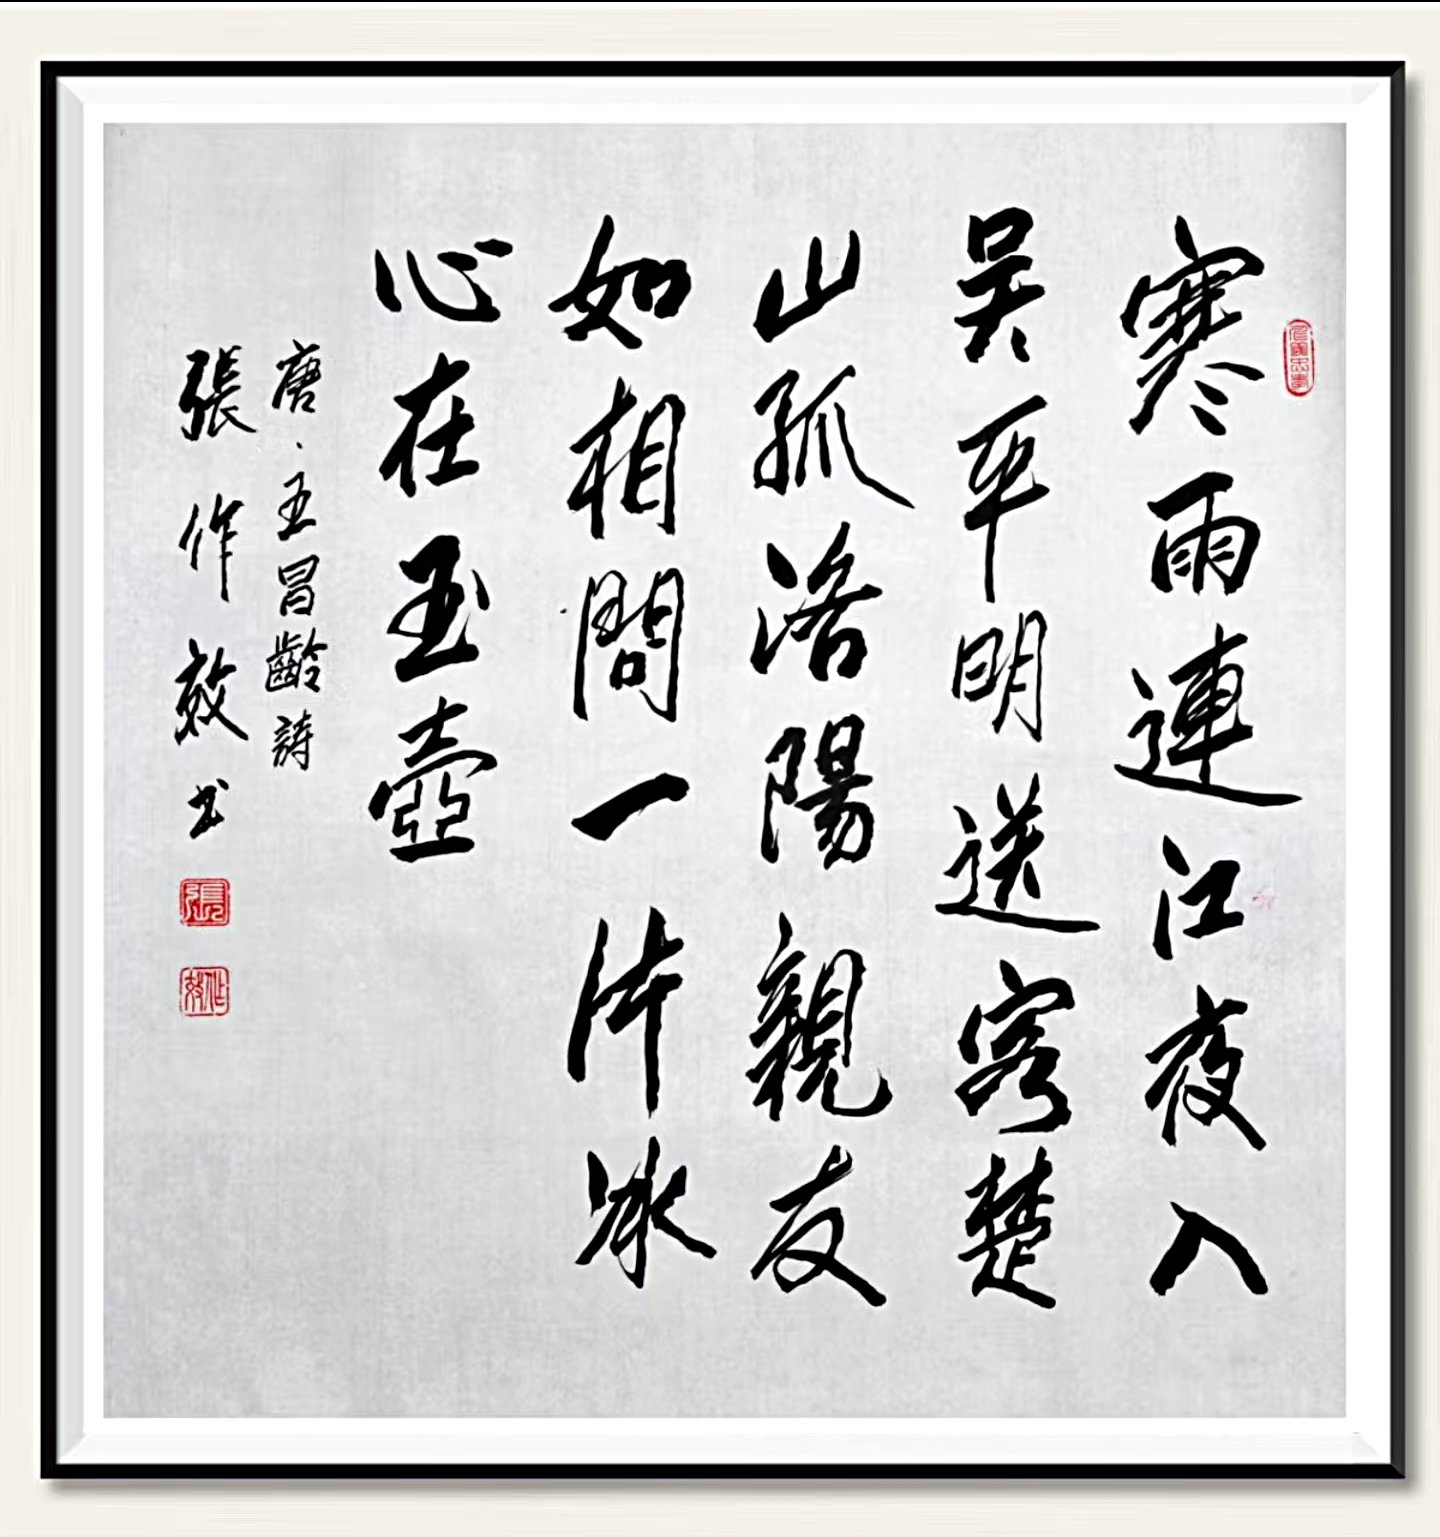 寒雨連江夜入
吳平明送客楚
山孤洛陽親友
如相問一片冰
心在玉壺
唐·王昌齡詩
張作效书
張
作效